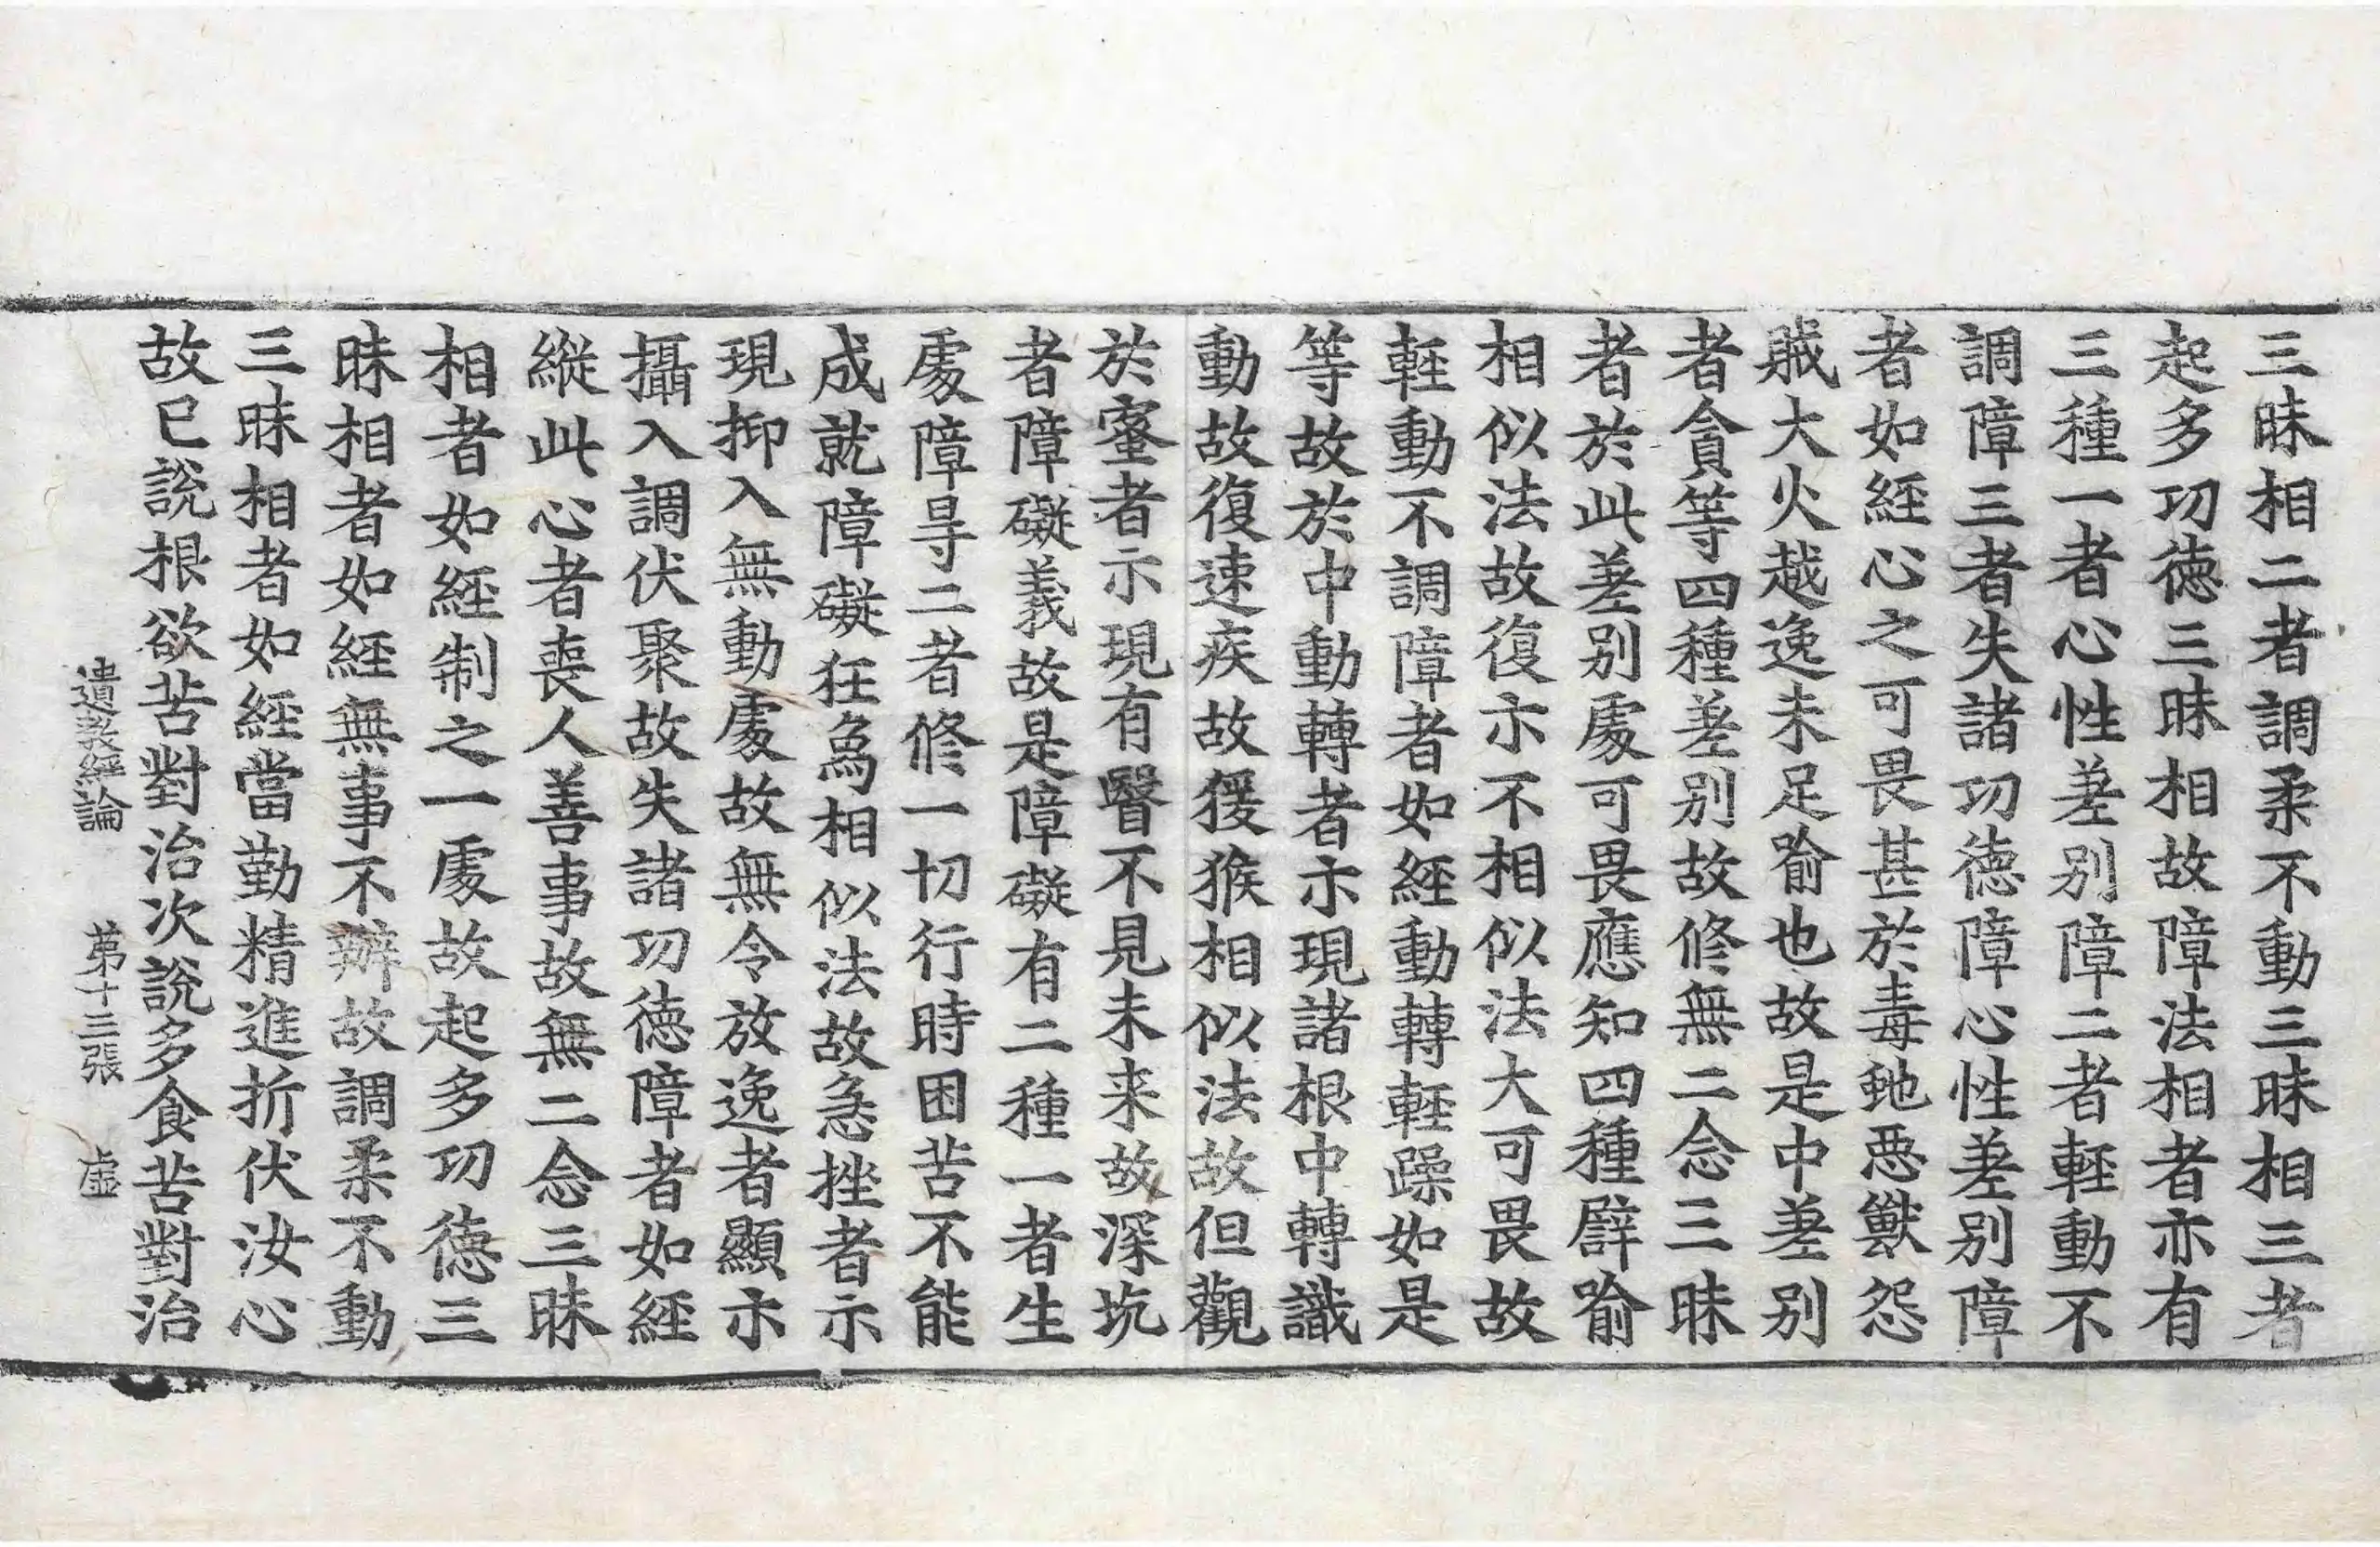 三昧相二者調柔不動三昧相三者
起多功徳三昧相故障法相者亦有
三種一者心性差别障二者軽動不
調障三者失諸功徳障心性差别障
者如經心之可畏甚於毒虵悪獸怨
賊大火越逸未足喻也故是中差别
者貪等四種差别故修無二念三昧
者於此差别處可畏應知四種譬喻
相似法故復示不相似法大可畏故
軽動不調障者如經動轉軽躁如是
等故於中動轉者示現諸根中轉識
動故復速疾故猨猴相似法故但觀
於蜜者示現有瞖不見未来故深坑
者障礙義故是障礙有二種一者生
處障㝵二者修一切行時困苦不能
成就障礙狂為相似法故急挫者示
現抑入無動處故無令放逸者顯示
攝入調伏聚故失諸功徳障者如經
縱此心者喪人善事故無二念三昧
相者如經制之一處故起多功徳三
昧相者如經無事不辦故調柔不動
三昧相者如經當勤精進折伏汝心
故已說根欲苦對治次說多食苦對治
遺教經論 第十三張 虛